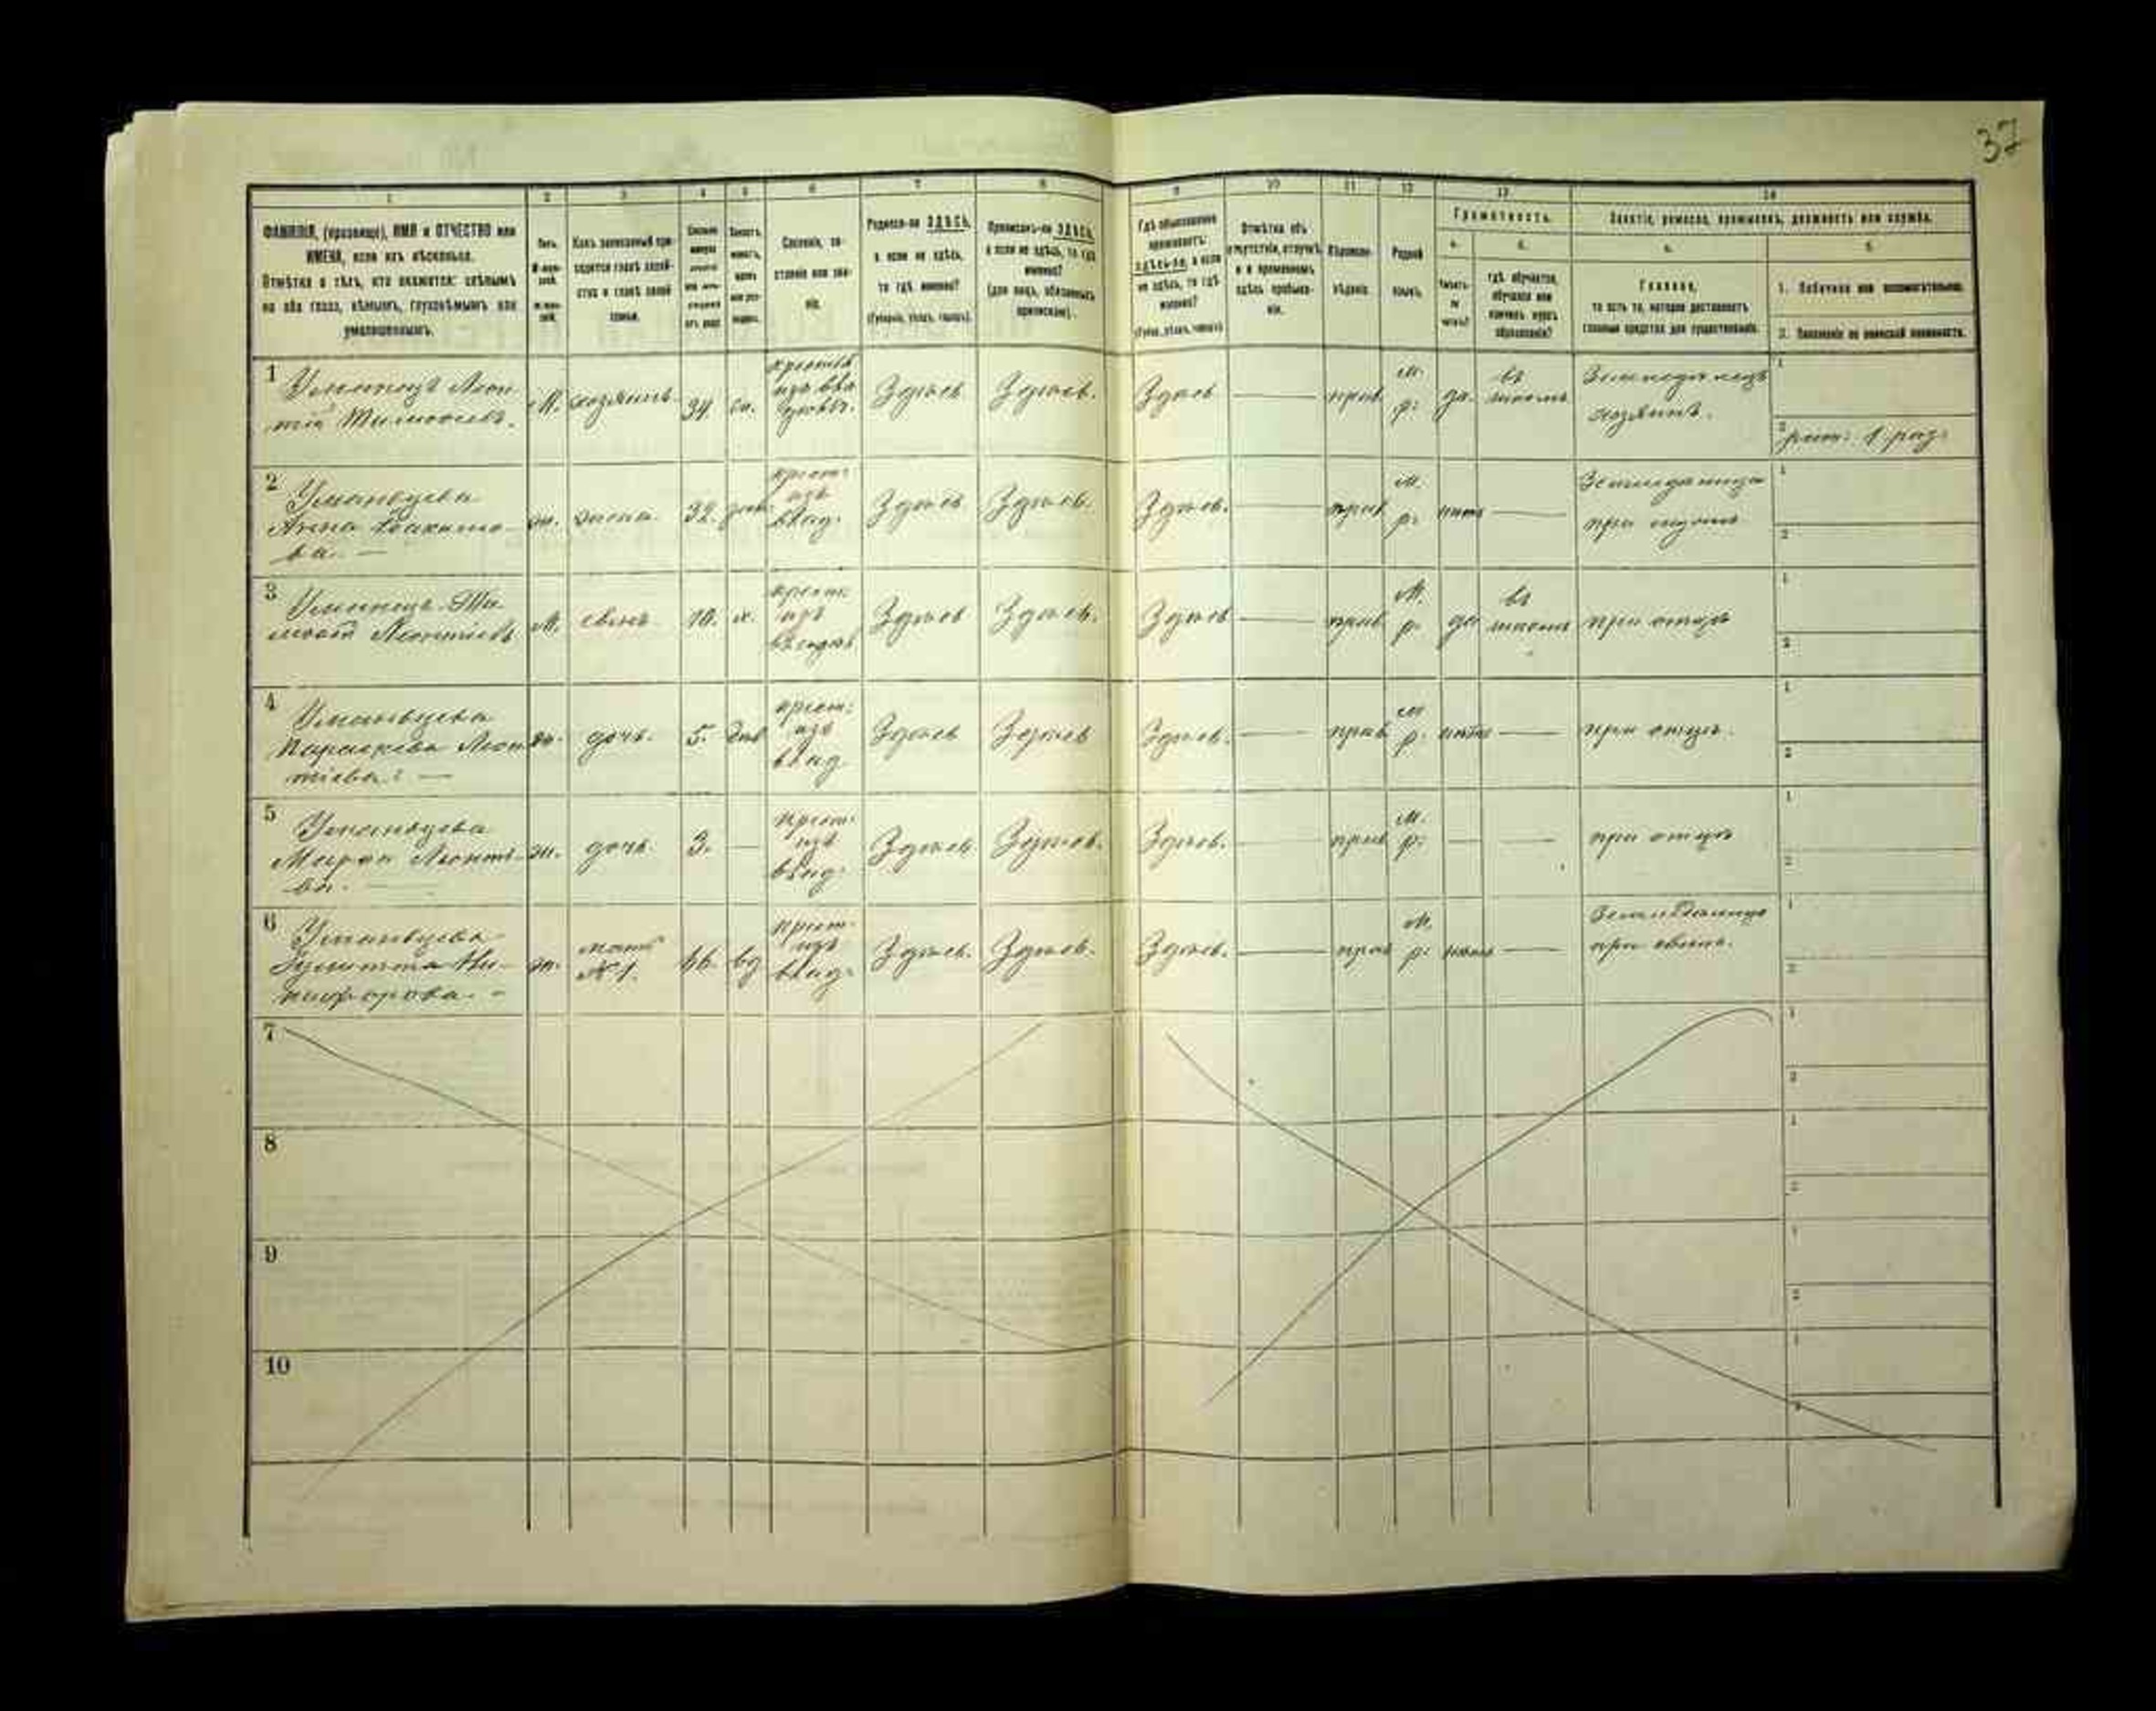 37
1 2 3 4 5 6 7 8 9 10 11 12 13 14
ФАМИЛІЯ, (прозвище), ИМЯ и ОТЧЕСТВО или
ИМЕНА, если ихъ нѣсколько.
Отмѣтка о тѣхъ, кто окажется: слѣпымъ
на оба глаза, нѣмымъ, глухонѣмымъ или
умалишеннымъ.
Полъ.
Какъ записанный при-
ходится главѣ хозяй-
ства и главѣ своей
семьи.
Сословіе, со-
стояніе или зва-
ніе.
Родился-ли ЗДѢСЬ,
а если не здѣсь,
то гдѣ именно?
(Губернія, уѣздъ, городъ).
Приписанъ-ли ЗДѢСЬ,
а если не здѣсь, то гдѣ
именно?
(для лицъ, обязанныхъ
припискою).
Гдѣ обыкновенно
проживаетъ:
здѣсь-ли, а если
не здѣсь, то гдѣ
именно?
Отмѣтка объ
отсутствіи, отлучкѣ
и о временномъ
здѣсь пребыва-
ніи.
Вѣроиспо-
вѣданіе.
Родной
языкъ.
Грамотность.
а. б.
Умѣетъ-
ли
читать?
гдѣ обучается,
обучался или
кончилъ курсъ
образованія?
Занятіе, ремесло, промыселъ, должность или служба.
а. б.
Главное,
то есть то, которое доставляетъ
главныя средства для существованія.
1. Побочное или вспомогательное.
2. Положеніе по воинской повинности.
1 Уманецъ Леон-
тій Тимофеевъ.
М. хозяинъ 34 Здѣсь Здѣсь. Здѣсь — прав м. р: да. въ школѣ
Земледѣлецъ
хозяинъ.
1
2 рат: 1 раз:
2 Уманцева
Анна
ва. —
жена. 32. крест: изъ влад: Здѣсь Здѣсь. Здѣсь. — прав м. р: нѣтъ —
при мужѣ
1
2
3 Уманецъ Ти-
моѳей Леонтіевъ
М. сынъ 10. х. крест: изъ Здѣсь Здѣсь. Здѣсь — прав М. р. да въ школѣ при отцѣ
1
2
4 Уманцева
Параскева Леон
тіева: —
дочь. 5. крест: изъ влад Здѣсь Здѣсь Здѣсь. — прав м р. нѣтъ — при отцѣ.
1
2
5 Уманцева
Марфа Леонтіе-
ва. —
дочь 3. — крест: изъ влад: Здѣсь Здѣсь. Здѣсь. — прав м. р: — — при отцѣ
1
2
6 Уманцева
Ни-
кифорова. -
мать № 1. 66. вд крест: изъ влад: Здѣсь. Здѣсь. Здѣсь. — прав м. р: нѣтъ —
при сынѣ.
1
2
7
1
2
8
1
2
9
1
2
10
1
2